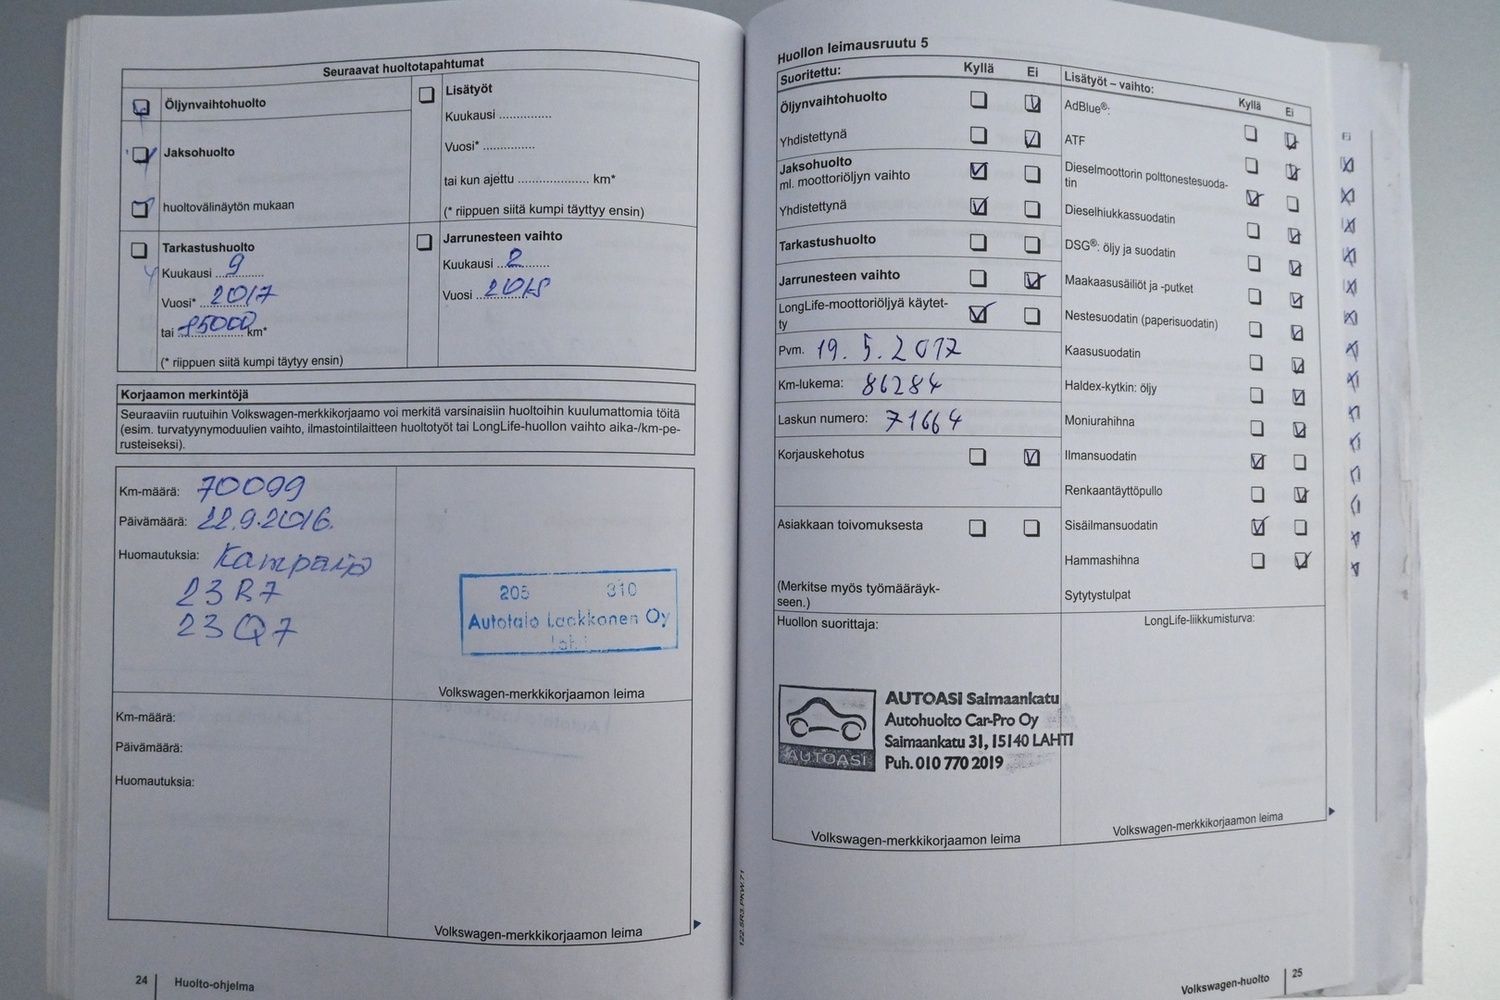 Seuraavat huoltotapahtumat
Öljynvaihtohuolto
Jaksohuolto
huoltovälinäytön mukaan
Lisätyöt
Kuukausi ...............
Vuosi* ...............
tai kun ajettu .................... km*
(* riippuen siitä kumpi täyttyy ensin)
Tarkastushuolto
Kuukausi 9
Vuosi* 2017
tai 85000 km*
(* riippuen siitä kumpi täytyy ensin)
Jarrunesteen vaihto
Kuukausi 2
Vuosi 2018
Korjaamon merkintöjä
Seuraaviin ruutuihin Volkswagen-merkkikorjaamo voi merkitä varsinaisiin huoltoihin kuulumattomia töitä
(esim. turvatyynymoduulien vaihto, ilmastointilaitteen huoltotyöt tai LongLife-huollon vaihto aika-/km-pe-
rusteiseksi).
Km-määrä: 70099
Päivämäärä: 22.9.2016.
Huomautuksia: Kampanja
23R7
23Q7
205 310
Autotalo Laakkonen Oy
Lahti
Volkswagen-merkkikorjaamon leima
Km-määrä:
Päivämäärä:
Huomautuksia:
Volkswagen-merkkikorjaamon leima
24 Huolto-ohjelma
122.5R3.PKW.71
Huollon leimausruutu 5
Suoritettu: Kyllä Ei
Öljynvaihtohuolto
Yhdistettynä
Jaksohuolto
ml. moottoriöljyn vaihto
Yhdistettynä
Tarkastushuolto
Jarrunesteen vaihto
LongLife-moottoriöljyä käytet-
ty
Pvm. 19.5.2017
Km-lukema: 86284
Laskun numero: 71664
Korjauskehotus
Asiakkaan toivomuksesta
(Merkitse myös työmääräyk-
seen.)
Lisätyöt – vaihto: Kyllä Ei
AdBlue®:
ATF
Dieselmoottorin polttonestesuoda-
tin
Dieselhiukkassuodatin
DSG®: öljy ja suodatin
Maakaasusäiliöt ja -putket
Nestesuodatin (paperisuodatin)
Kaasusuodatin
Haldex-kytkin: öljy
Moniurahihna
Ilmansuodatin
Renkaantäyttöpullo
Sisäilmansuodatin
Hammashihna
Sytytystulpat
Ei
Huollon suorittaja:
AUTOASI
AUTOASI Saimaankatu
Autohuolto Car-Pro Oy
Saimaankatu 31, 15140 LAHTI
Puh. 010 770 2019
Volkswagen-merkkikorjaamon leima
LongLife-liikkumisturva:
Volkswagen-merkkikorjaamon leima
Volkswagen-huolto 25